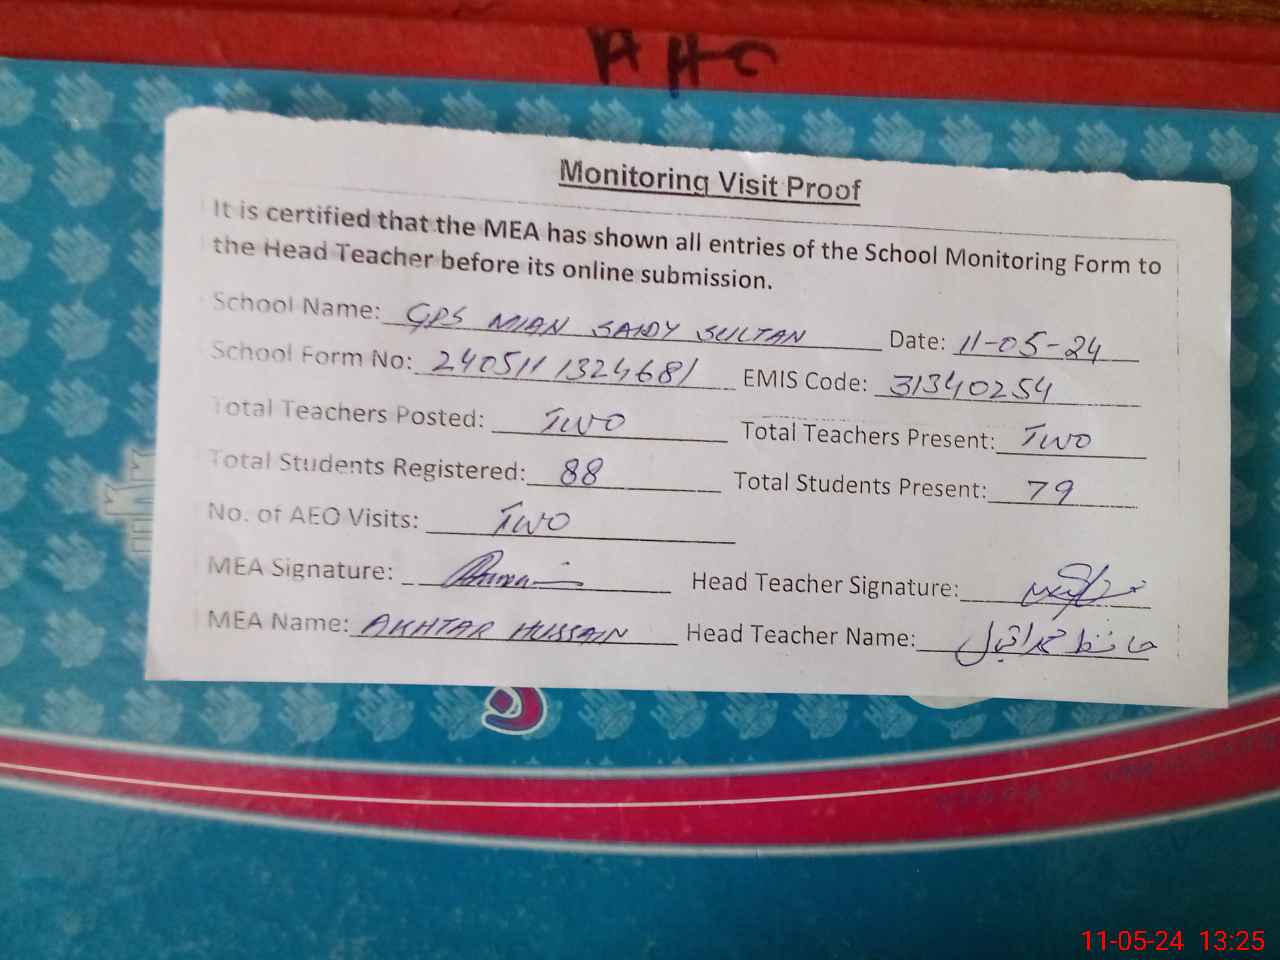 AHC
Monitoring Visit Proof
It is certified that the MEA has shown all entries of the School Monitoring Form to
the Head Teacher before its online submission.
School Name: GPS MIAN SAIDY SULTAN Date: 11-05-24
School Form No: 240511 1324681 EMIS Code: 31340254
Total Teachers Posted: TWO Total Teachers Present: TWO
Total Students Registered: 88 Total Students Present: 79
No. of AEO Visits: TWO
MEA Signature: Head Teacher Signature:
MEA Name: AKHTAR HUSSAIN Head Teacher Name: حافظ محمد اقبال
11-05-24 13:25